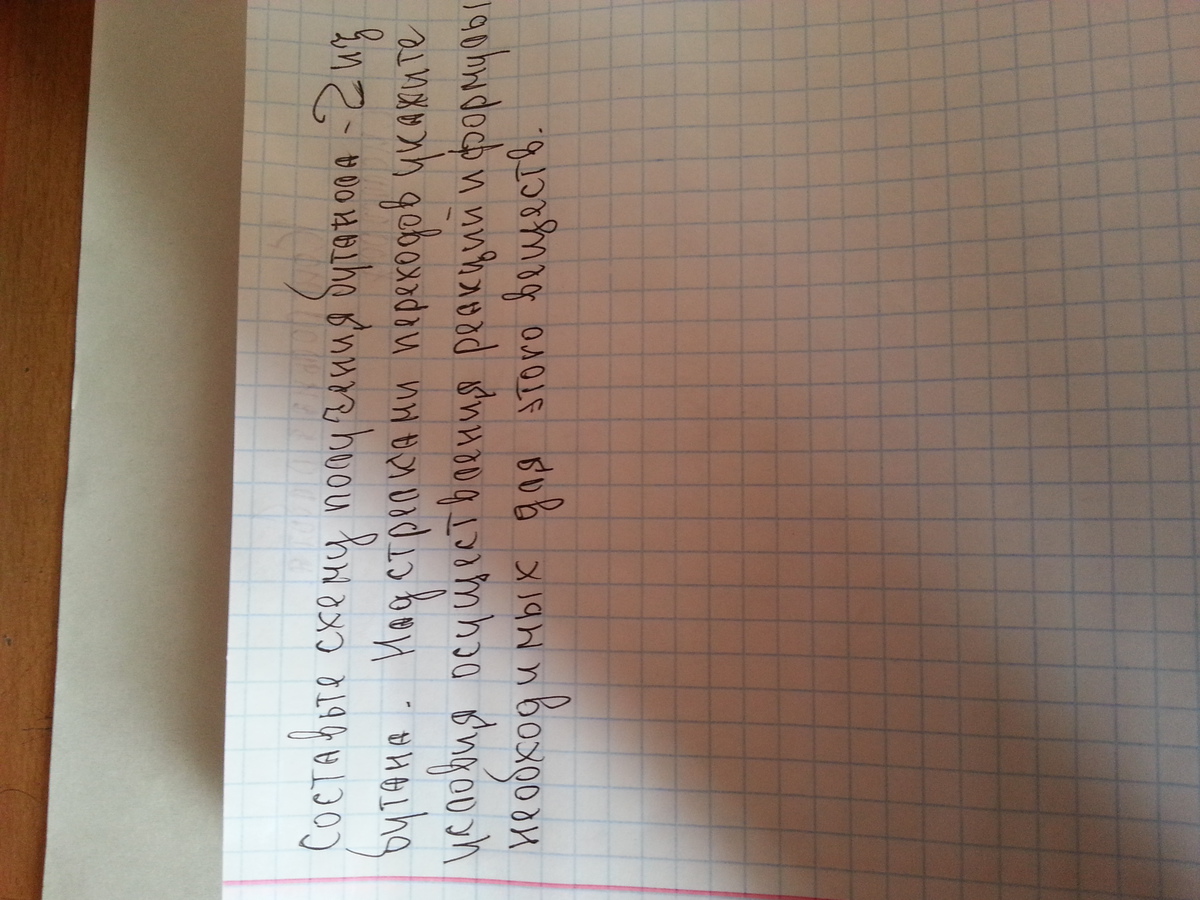 Составьте схему получения бутанола-2 из
бутана. Над стрелками переходов укажите
условия осуществления реакций и формулы
необходимых для этого веществ.